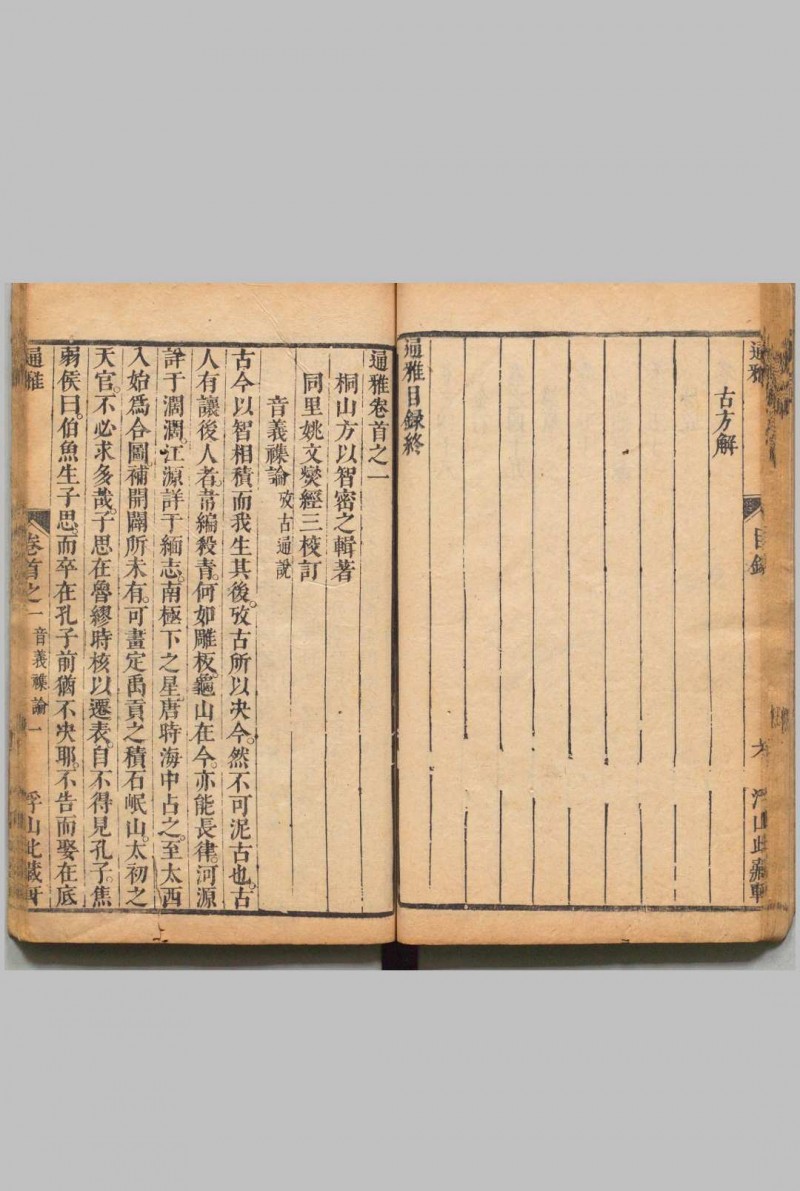 通雅
目錄
六
浮山此藏軒
古方解
通雅目録終
通雅卷首之一
桐山方以智密之輯著
同里姚文燮經三校訂
音義襍論 攷古通說
古今以智相積而我生其後。攷古所以决今。然不可泥古也。古
人有讓後人者。韋編殺青。何如雕板。龜山在今。亦能長律。河源
詳于濶濶。江源詳于緬志。南極下之星。唐時海中占之。至太西
入始爲合圖。補開闢所未有。可畫定禹貢之積石岷山。太初之
天官。不必求多哉。子思在魯繆時核以遷表。自不得見孔子。焦
弱侯曰。伯魚生子思。而卒在孔子前猶不决耶。不告而娶在底
通雅
卷首之一 音義襍論 一
浮山此藏軒